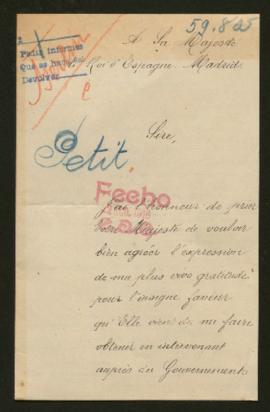 59.825
2
Pedir informes
Que se hagan
Devolver
A Sa Majesté
Roi d'Espagne. Madrid.
Sire,
Petit.
Fecho
J'ai l'honneur de prier
Votre Majesté de vouloir
bien agréer l'expression
de ma plus vive gratitude
pour l'insigne faveur
qu'Elle vient de me faire
obtenir en intervenant
auprès du Gouvernement